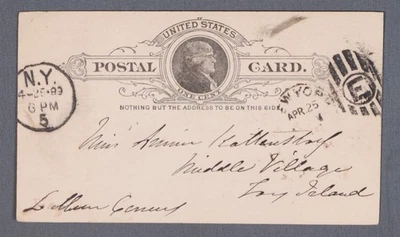 UNITED STATES
POSTAL CARD.
ONE CENT
NOTHING BUT THE ADDRESS TO BE ON THIS SIDE.
N.Y.
4-25-89
6 PM
5
NEW YORK
APR 25
Miss Annie
Middle Village
Long Island